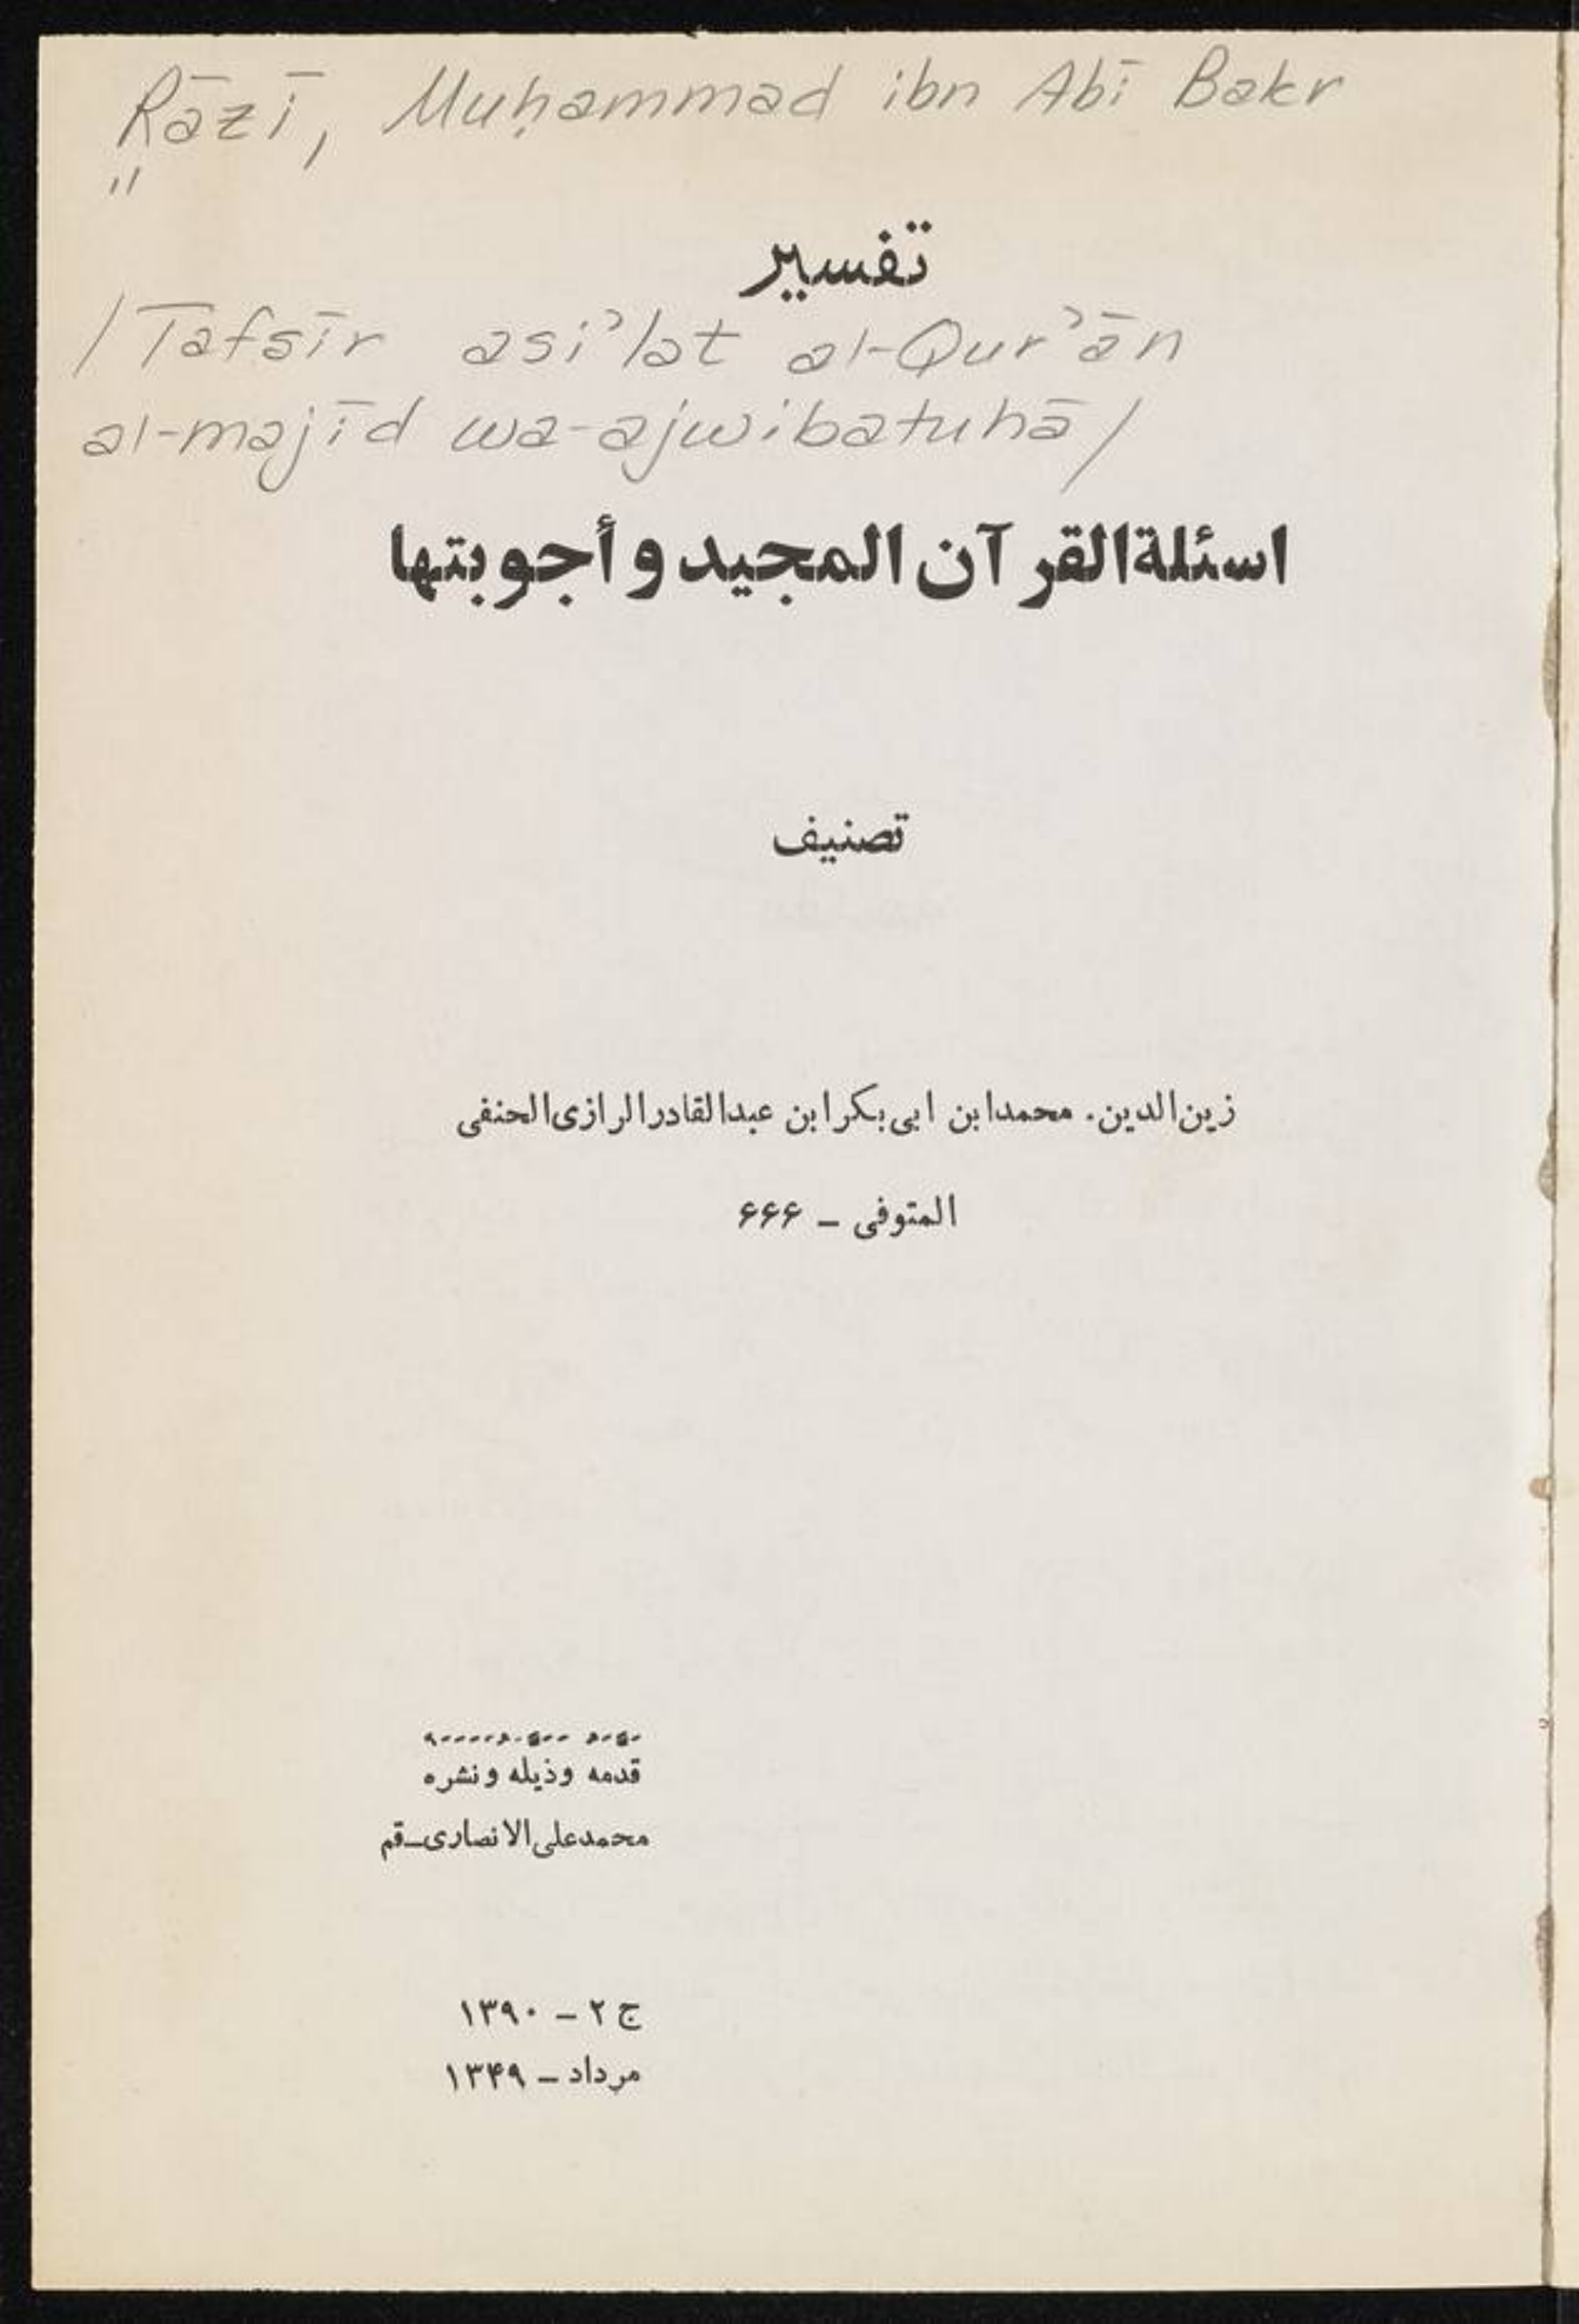 Rāzī, Muḥammad ibn Abī Bakr
"
تفسير
/Tafsīr asi'lat al-Qur'ān
al-majīd wa-ajwibatuhā/
اسئلة القرآن المجيد و أجوبتها
تصنيف
زين الدين. محمد ابن ابى بكر ابن عبدالقادر الرازى الحنفى
المتوفى – ۶۶۶
قدمه وذيله ونشره
محمدعلى الانصارى–قم
ج ۲ – ۱۳۹۰
مرداد – ۱۳۴۹